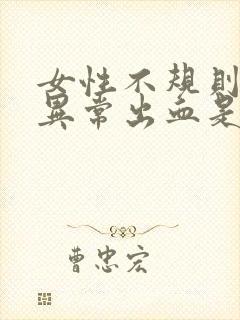 女性不規則
異常出血是
曹忠宏